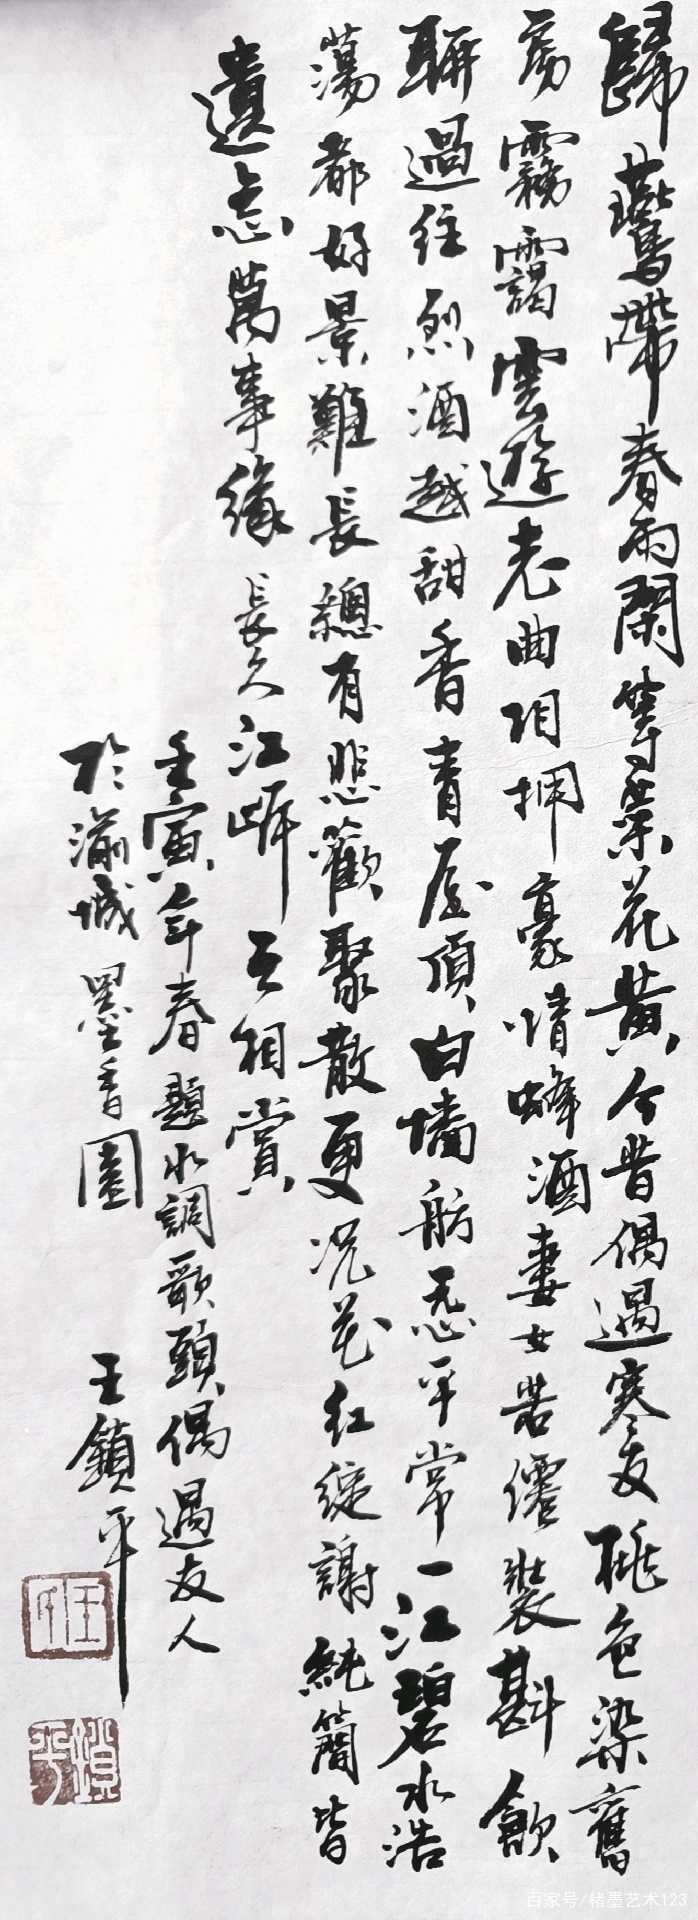 歸鶯帶春雨閑等菜花黃今昔偶過寒友桃色染舊
房霧靄雲遊老曲相擁豪情蜂酒妻女若儒裝斟飲
聊過往烈酒越甜香青屋頂白墻舫忍平常一江碧水浩
蕩都好景難長總有悲歡聚散更況花紅綻謝純簡皆
遺忘萬事緣長久江岸互相賞
壬寅年春題水調歌頭偶遇友人
於瀛城墨香園
王鎖平
王
鎖平
百家号/楮墨艺术123